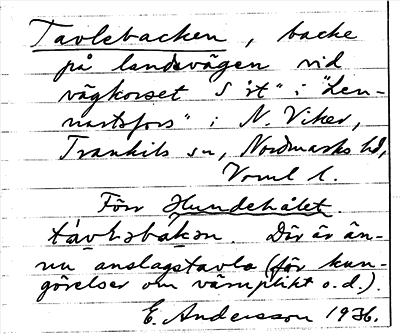 Tavlebacken, backe
på landsvägen vid
vägkorset S "it" i "Len-
nartsfors" i N. Viker,
Trankils sn, Nordmarks hd,
Vrml l.
Förr Hundehålet.
Där är än-
nu anslagstavla (för kun-
görelser om värnplikt o.d.).
E. Andersson 1936.